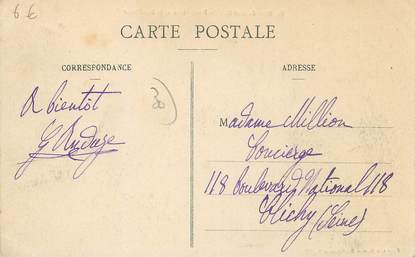 6 €
CARTE POSTALE
CORRESPONDANCE
ADRESSE
A bientôt
30
Madame Million
Concierge
118 Boulevard National 118
Clichy (Seine)